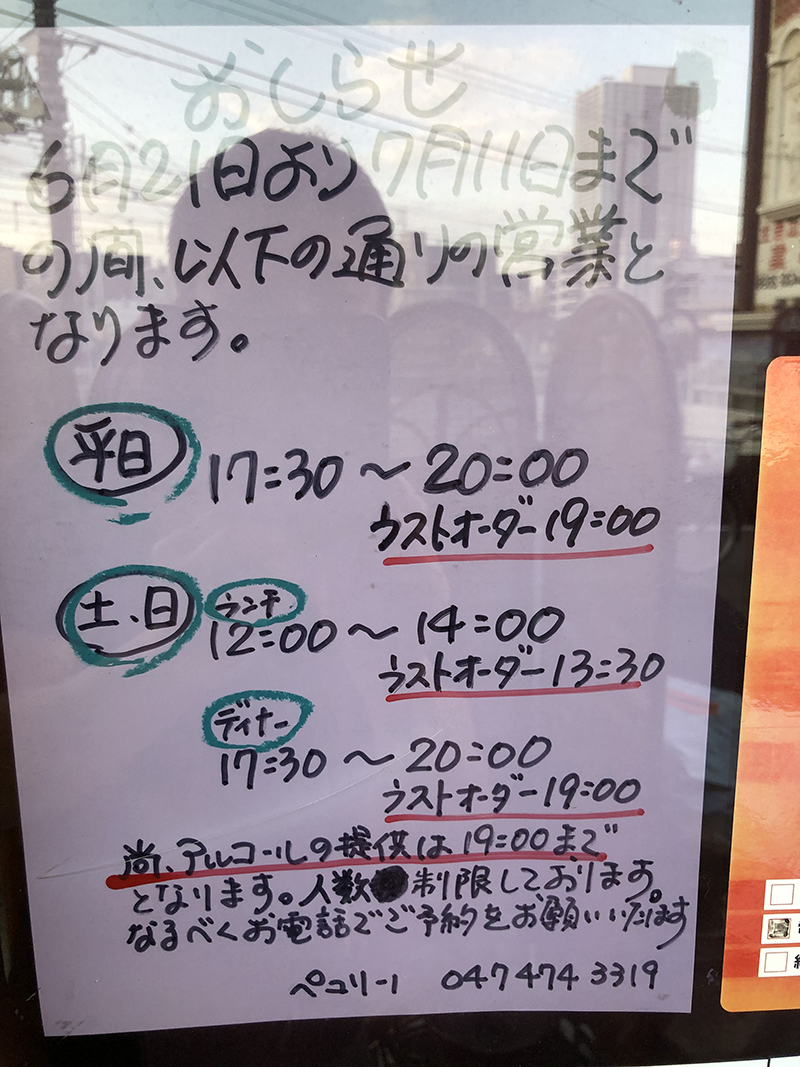 おしらせ
6月21日より7月11日まで
の間、以下の通りの営業と
なります。
平日
17:30～20:00
ラストオーダー19:00
土、日
ランチ
12:00～14:00
ラストオーダー13:30
ディナー
17:30～20:00
ラストオーダー19:00
尚、アルコールの提供は19:00まで
となります。人数制限しております。
なるべくお電話でご予約をお願いいたします
ペコリーノ 047 474 3319